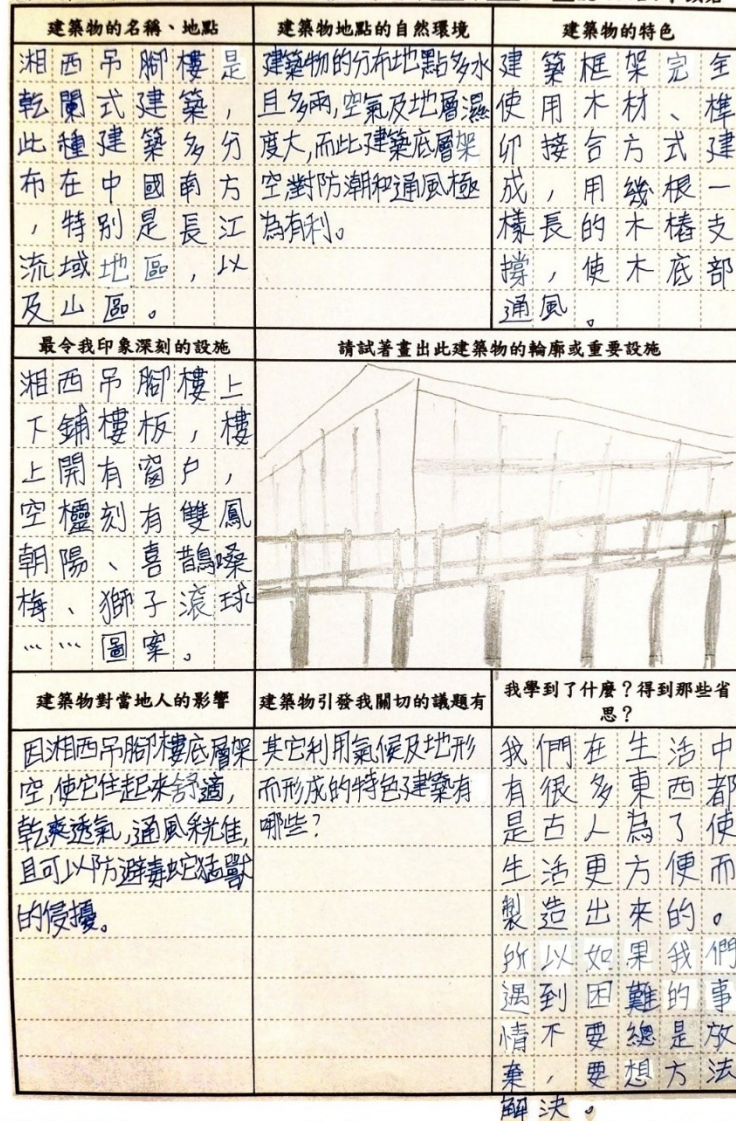 建築物的名稱、地點
湘西吊腳樓是
乾闌式建築，
此種建築多分
布在中國南方
，特別是長江
流域地區，以
及山區。
建築物地點的自然環境
建築物的分布地點多水
且多雨，空氣及地層濕
度大，而此建築底層架
空對防潮和通風極
為有利。
建築物的特色
建築框架完全
使用木材、榫
卯接合方式建
成，用幾根一
樣長的木樁支
撐，使木底部
通風。
最令我印象深刻的設施
湘西吊腳樓上
下鋪樓板，樓
上開有窗戶，
空欞刻有雙鳳
朝陽、喜鵲嗓
梅、獅子滾球
……圖案。
請試著畫出此建築物的輪廓或重要設施
建築物對當地人的影響
因湘西吊腳樓底層架
空，使它住起來舒適，
乾爽透氣，通風絕佳，
且可以防避毒蛇猛獸
的侵擾。
建築物引發我關切的議題有
其它利用氣候及地形
而形成的特色建築有
哪些？
我學到了什麼？得到那些省
思？
我們在生活中
有很多東西都
是古人為了使
生活更方便而
製造出來的。
所以如果我們
遇到困難的事
情不要總是放
棄，要想方法
解決。